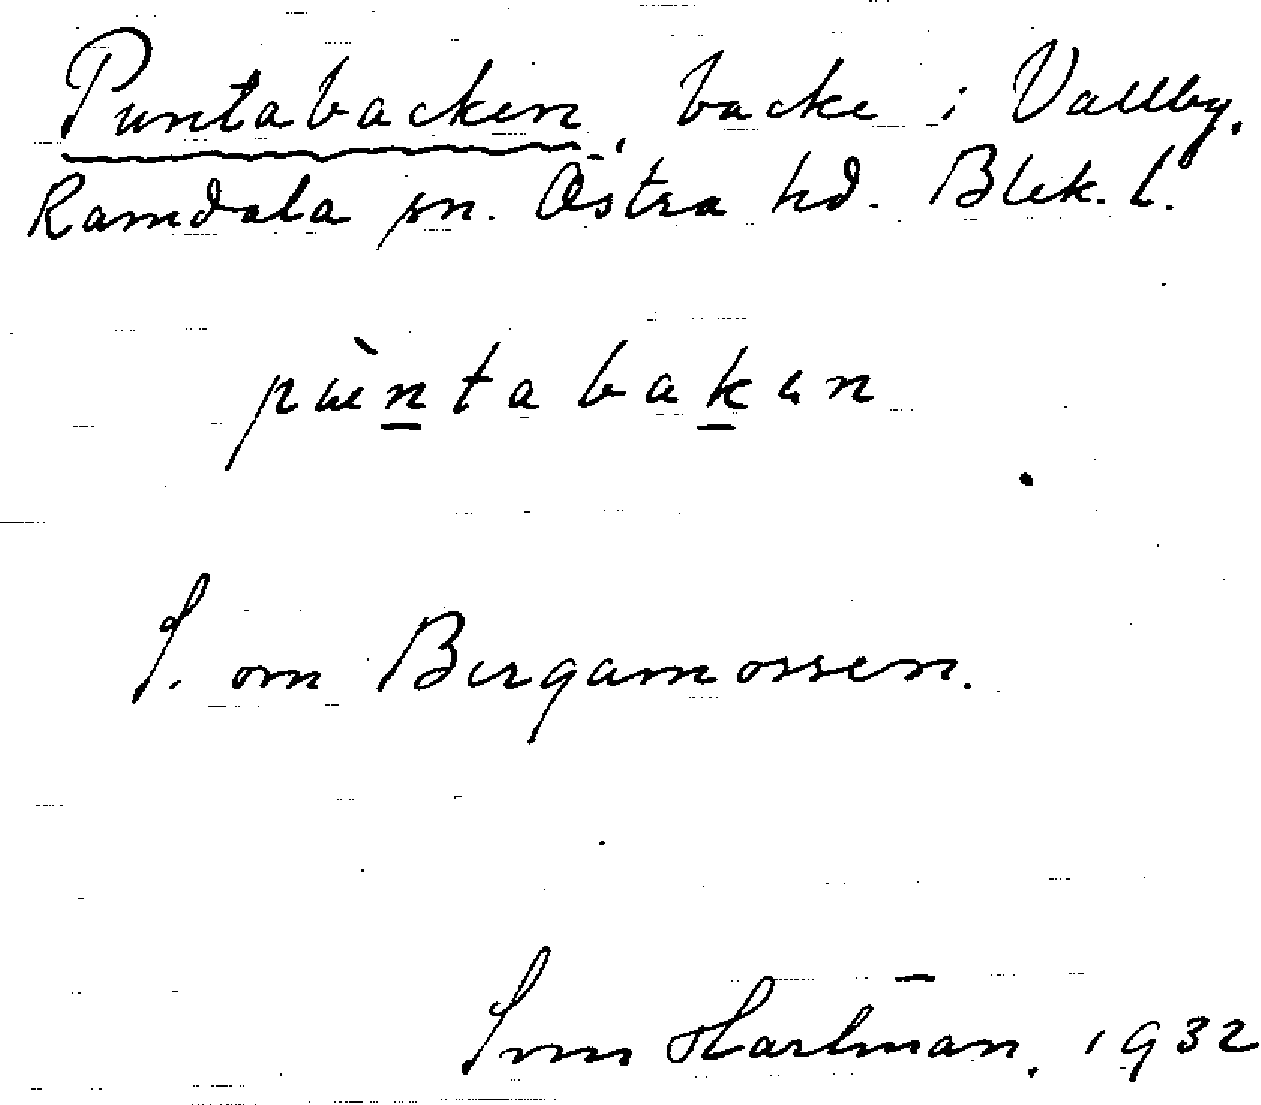 Puntabacken, backe i Vallby.
Ramdala sn. Östra hd. Blek. l.
S. om Bergamossen.
Sven Hartman. 1932